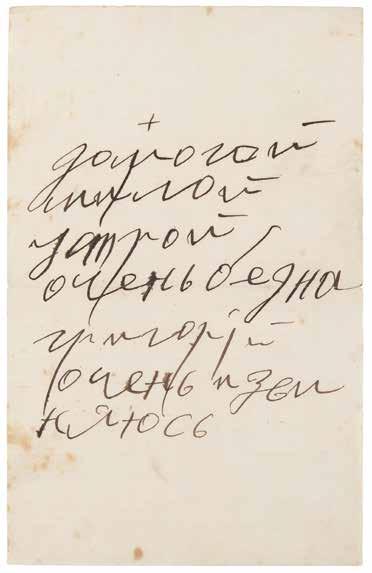 +
дорогой
милой
устрой
очень бедна
григорій
очень изви
няюсь